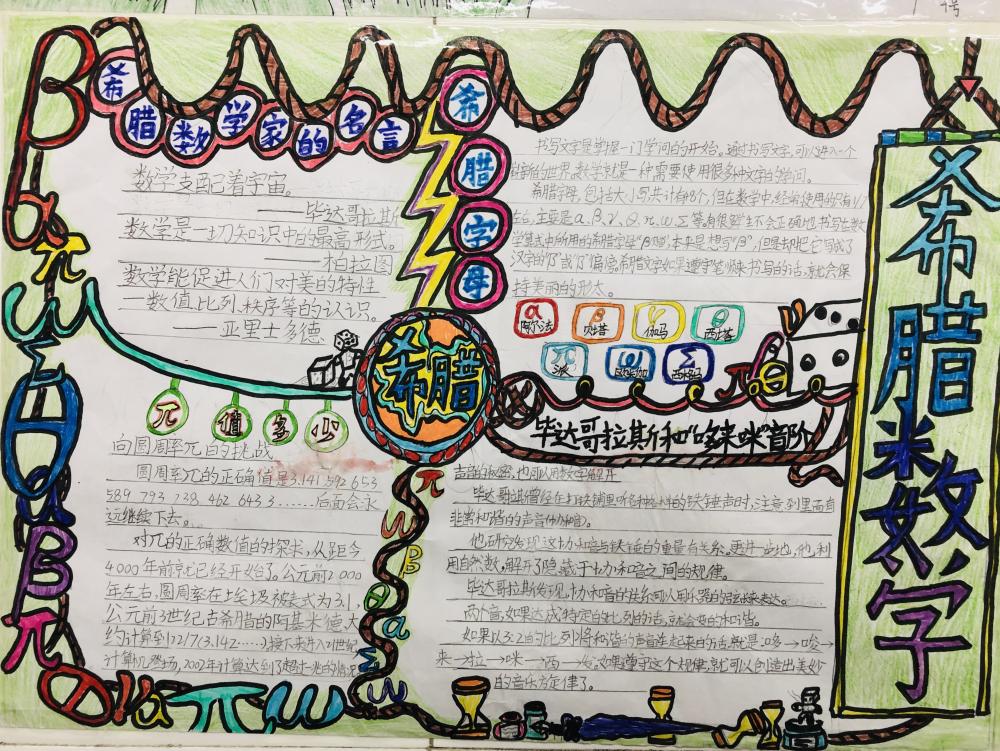 4号
希腊数学家的名言
数学支配着宇宙。
——毕达哥拉斯
数学是一切知识中的最高形式。
——柏拉图
数学能促进人们对美的特性
—数值比列、秩序等的认识。
——亚里士多德
希腊字母
书写文字是掌握一门学问的开始。通过书写文字,可以进入一个
崭新的世界。数学就是一种需要使用很多种文字的学问。
希腊字母,包括大小写共计有48个,但在数学中,经常使用的只有1/7
左右,主要是α、β、γ、θ、π、ω、Σ等。有很多学生不会正确地书写在数
学算式中所用的希腊字母“β”
本来是想写“β”,但是却把它写成了
汉字的
偏旁,希腊文字如果遵守笔顺来书写的话,就会保
持美丽的形态。
α 阿尔法
β 贝塔
γ 伽马
θ 西塔
π 派
ω 欧米伽
Σ 西格玛
希腊
希腊数学
π值多少
向圆周率π的挑战
圆周率π的正确值是3.141 592 653
589 793 238 462 643 3……后面会永
远继续下去。
对π的正确数值的探求,从距今
4000年前就已经开始了。公元前2000
年左右,圆周率在古埃及被表式为3.1,
公元前3世纪古希腊的阿基米德,大
约计算到22/7(3.142……)接下来进入21世纪
计算机登场,2002年计算达到了超过一兆的情况
毕达哥拉斯和“哆来咪”音阶
声音的秘密,也可以用数学解开
毕达哥拉斯曾经在打铁铺里听各种各样的铁锤声时,注意到里面有
非常和谐的声音(协和音)。
他研究发现这协和音与铁锤的重量有关系。更进一步地,他利
用自然数,解开了隐藏于协和音之间的规律。
毕达哥拉斯发现,协和音的关系可以用乐器的弦长来表达。
两个音,如果达成特定的比列的话,就会变的和谐。
如果以3:2的比列将和谐的声音连起来的话就是:哆→唆→
来→拉→咪→西→发。如果遵守这个规律,就可以创造出美妙
的音乐旋律了。